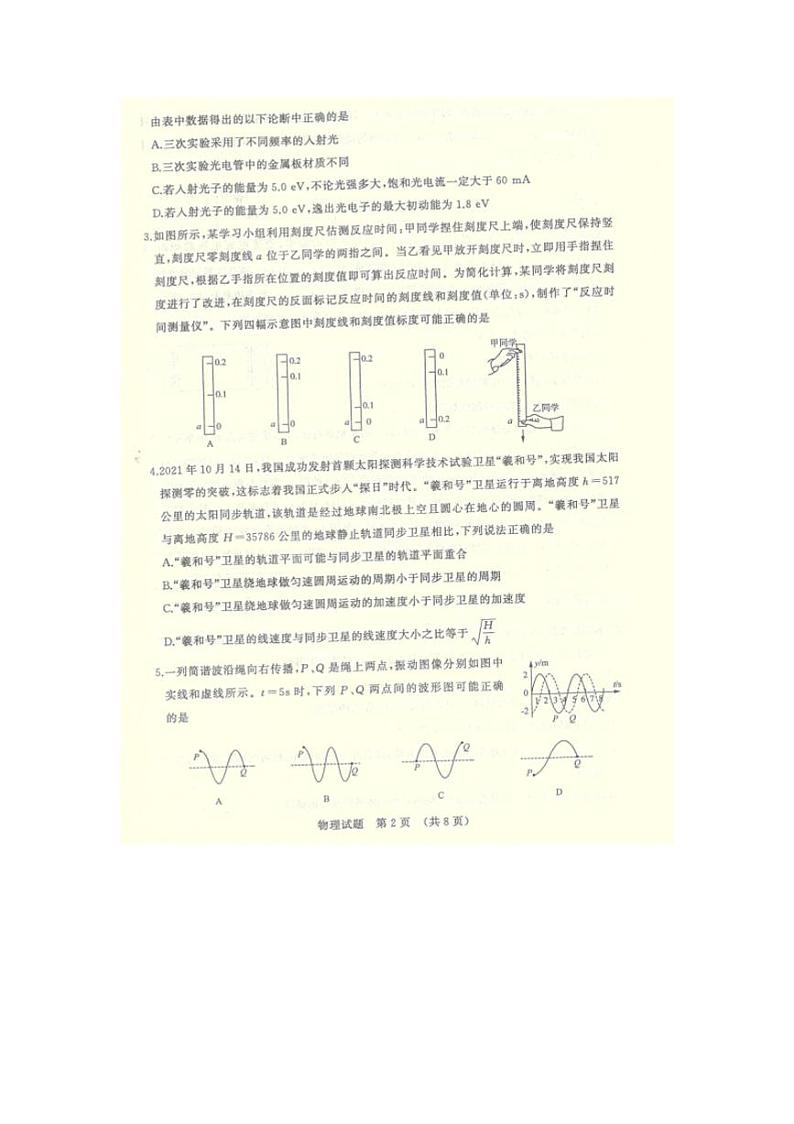 由表中数据得出的以下论断中正确的是
A.三次实验采用了不同频率的入射光
B.三次实验光电管中的金属板材质不同
C.若入射光子的能量为 5.0 eV,不论光强多大,饱和光电流一定大于 60 mA
D.若入射光子的能量为 5.0 eV,逸出光电子的最大初动能为 1.8 eV
3.如图所示,某学习小组利用刻度尺估测反应时间:甲同学捏住刻度尺上端,使刻度尺保持竖
直,刻度尺零刻度线 a 位于乙同学的两指之间。当乙看见甲放开刻度尺时,立即用手指捏住
刻度尺,根据乙手指所在位置的刻度值即可算出反应时间。为简化计算,某同学将刻度尺刻
度进行了改进,在刻度尺的反面标记反应时间的刻度线和刻度值(单位:s),制作了“反应时
间测量仪”。下列四幅示意图中刻度线和刻度值标度可能正确的是
0.2
0.1
a 0
A
0.2
0.1
a 0
B
0.2
0.1
a 0
C
0
0.1
a 0.2
D
甲同学
乙同学
a
4.2021 年 10 月 14 日,我国成功发射首颗太阳探测科学技术试验卫星“羲和号”,实现我国太阳
探测零的突破,这标志着我国正式步入“探日”时代。“羲和号”卫星运行于离地高度 h=517
公里的太阳同步轨道,该轨道是经过地球南北极上空且圆心在地心的圆周。“羲和号”卫星
与离地高度 H=35786 公里的地球静止轨道同步卫星相比,下列说法正确的是
A.“羲和号”卫星的轨道平面可能与同步卫星的轨道平面重合
B.“羲和号”卫星绕地球做匀速圆周运动的周期小于同步卫星的周期
C.“羲和号”卫星绕地球做匀速圆周运动的加速度小于同步卫星的加速度
D.“羲和号”卫星的线速度与同步卫星的线速度大小之比等于 √(H/h)
5.一列简谐波沿绳向右传播,P、Q 是绳上两点,振动图像分别如图中
实线和虚线所示。t=5s 时,下列 P、Q 两点间的波形图可能正确
的是
y/m
2
0
-2
1 2 3 4 5 6 7 8
t/s
P Q
P Q
A
P Q
B
P Q
C
P Q
D
物理试题 第 2 页 (共 8 页)